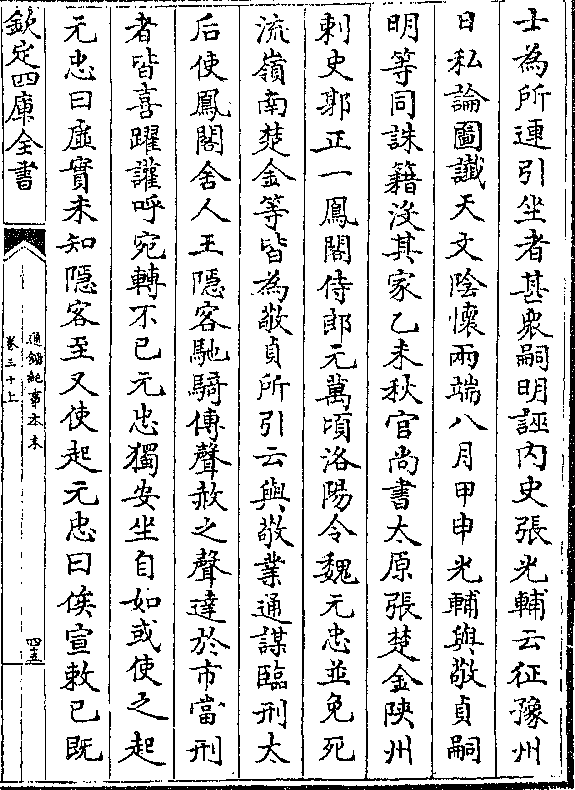 士為所連引坐者甚衆嗣明誣内史張光輔云征豫州
日私論圖讖天文陰懷兩端八月甲申光輔與敬貞嗣
明等同誅籍没其家乙未秋官尚書太原張楚金陜州
刺史郭正一鳳閣侍郎元萬頃洛陽令魏元忠並免死
流嶺南楚金等皆為敬貞所引云與敬業通謀臨刑太
后使鳳閣舍人王隱客馳騎傳聲赦之聲達於市當刑
者皆喜躍讙呼宛轉不已元忠獨安坐自如或使之起
元忠曰虛實未知隱客至又使起元忠曰俟宣敕已既
欽定四庫全書
通鑑紀事本末
卷三十上
四五